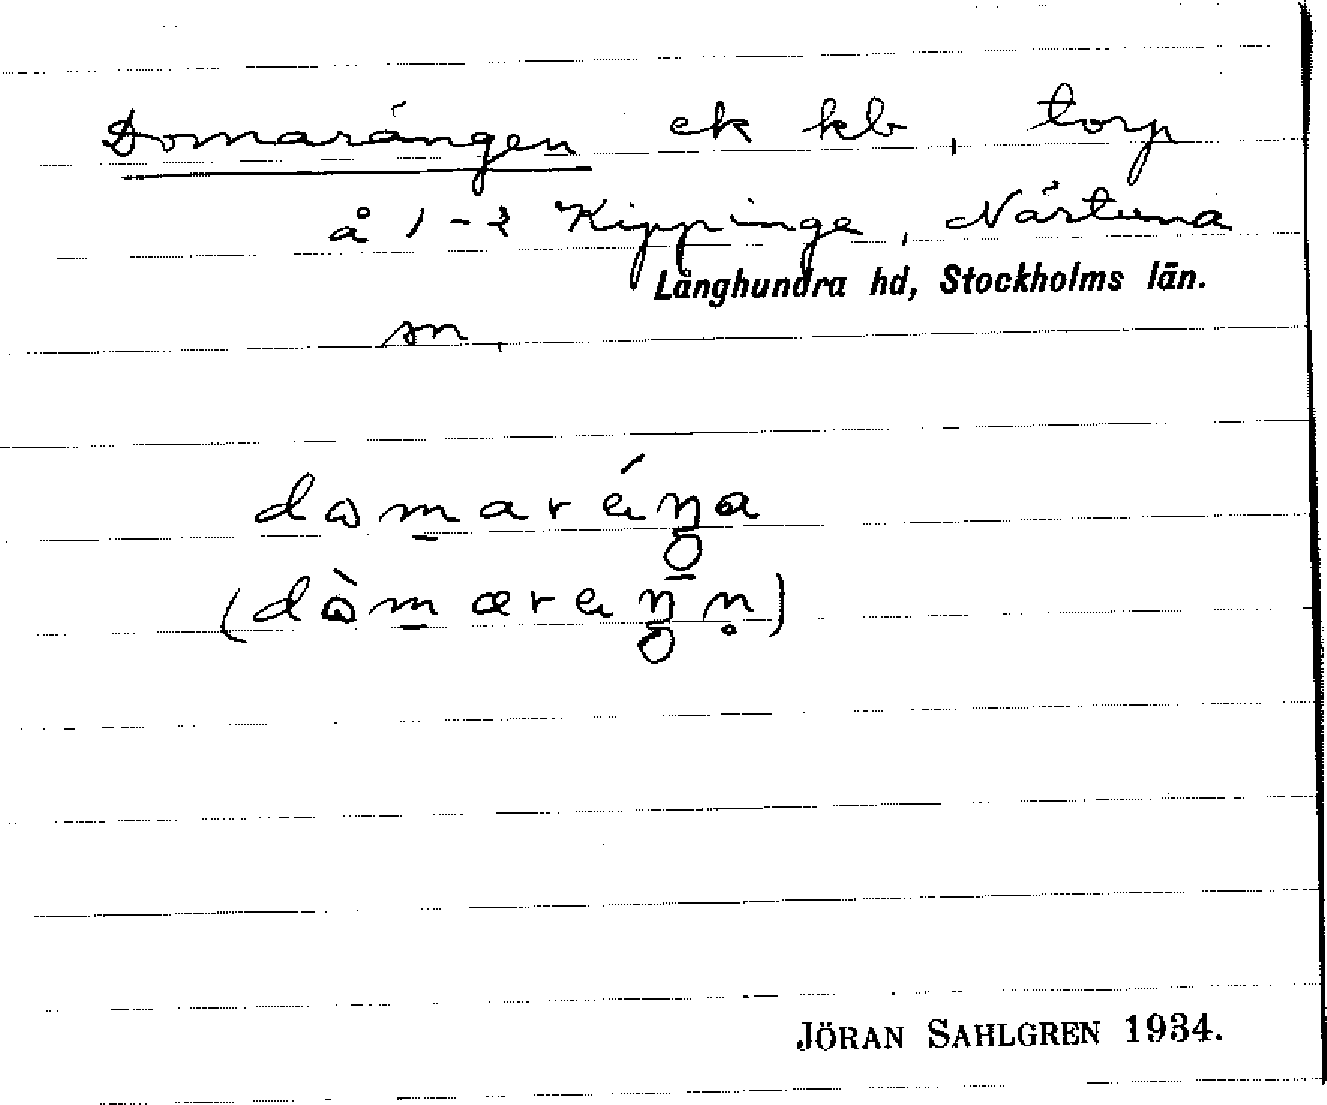 Domarängen ek kb, torp
å 1-2 Kippinge, Närtuna
Långhundra hd, Stockholms län.
sn,
JÖRAN SAHLGREN 1934.